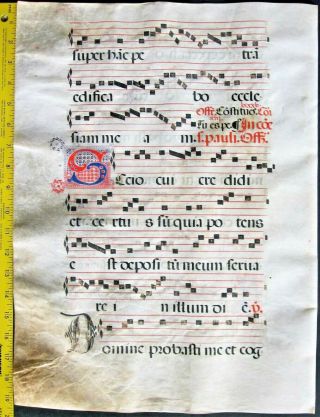 super hãc pe trã
edifica bo eccle
Offe. Cõstitues. Cõi
siam me a m. Tu es pe. In cõe
s. pauli. Off.
Scio cui credidi
et certus sũ quia potens
e st depositũ meum serua
re i n illum di ẽ. ps.
Domine probasti me et cog